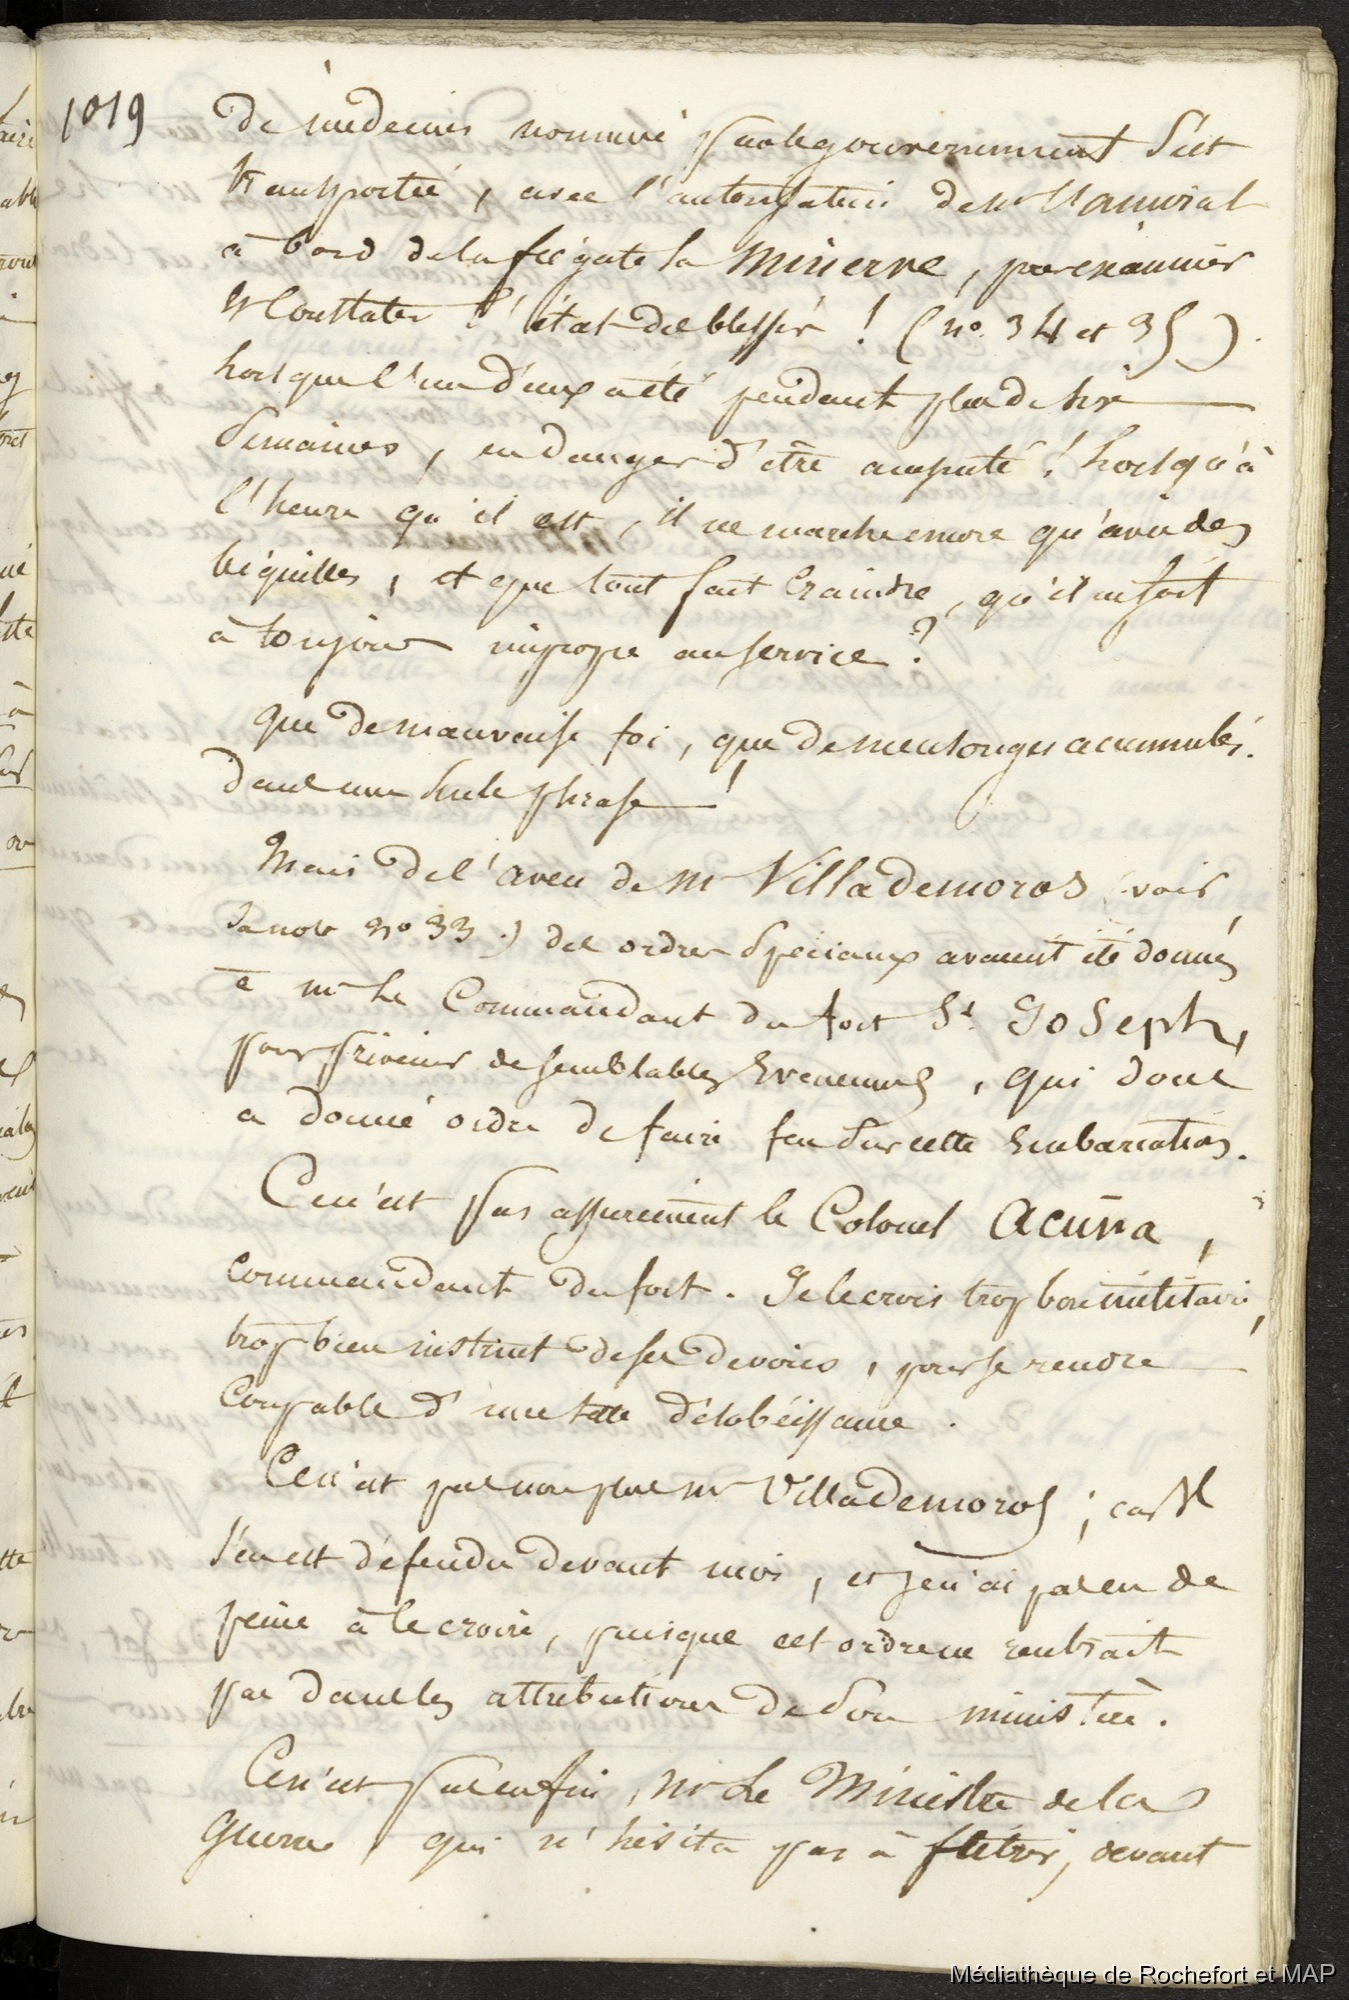 1019
de médecins nommé par le gouvernement s'est
transportée, avec l'autorisation de Mr l'amiral
à bord de la frégate la Minerve, pour examiner
et constater l'état des blessés ! (no. 34 et 35).
lorsque l'un d'eux a été pendant plus de six
semaines, en danger d'être amputé ! lorsqu'à
l'heure qu'il est, il ne marche encore qu'avec des
béquilles, et que tout fait craindre, qu'il ne soit
à toujours impropre au service ?
que de mauvaise foi, que de mensonges accumulés
dans une seule phrase !
Mais de l'aveu de Mr Villademoros (voir
sa note no 33.) des ordres spéciaux avaient été donnés
à Mr le Commandant du fort St. Joseph,
pour prévenir de semblables évenemens, qui donc
a donné ordre de faire feu sur cette embarcation.
Ce n'est pas assurément le Colonel Acuña,
commandant du fort. Je le crois trop bon militaire,
trop bien instruit de ses devoirs, pour se rendre
coupable d'une telle désobéissance.
Ce n'est pas non plus Mr Villademoros ; car il
s'en est défendu devant moi, et je n'ai pas eu de
peine à le croire, puisque cet ordre ne rentrait
pas dans les attributions de son ministère.
Ce n'est pas enfin, Mr Le Ministre de la
Guerre qui n'hésita pas à flétrir, devant
Médiathèque de Rochefort et MAP